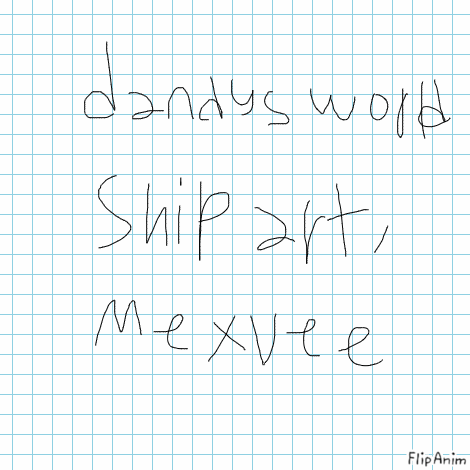 dandys world
Ship art,
Mexvee
FlipAnim